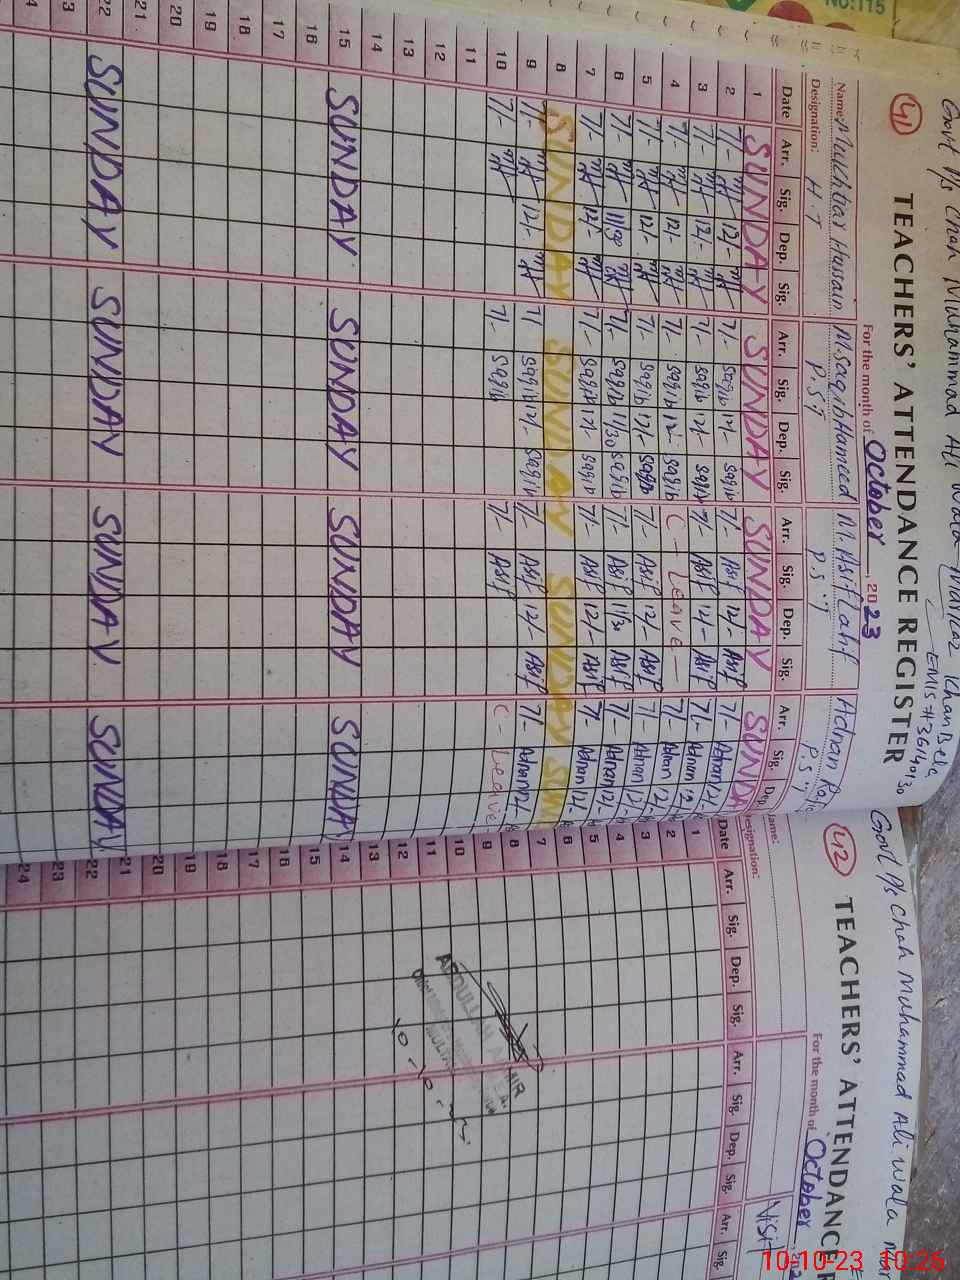 No:115
Govt P/s Chah Muhammad Ali Wala Markaz Khan Bela
EMIS # 36140130
41
TEACHERS' ATTENDANCE REGISTER
For the month of October 2023
Name: Mukhtiar Hussain M. Saqib Hameed M. Asif Adnan
Designation: H.T P.ST P.S.T P.S.T
Date Arr. Sig. Dep. Sig. Arr. Sig. Dep. Sig. Arr. Sig. Dep. Sig. Arr. Sig. Dep.
1 SUNDAY SUNDAY SUNDAY SUNDA
2 7/- 12/- 7/- Saqib 12/- Saqib 7/- Asif 12/- Asif 7/- Adnan 12/-
3 7/- 12/- 7/- Saqib 12/- Saqib 7/- Asif 12/- Asif 7/- Adnan 12/-
4 7/- 12/- 7/- Saqib 12/- Saqib C - Leave - 7/- Adnan 12/-
5 7/- 12/- 7/- Saqib 12/- Saqib 7/- Asif 12/- Asif 7/- Adnan 12/-
6 7/- 11/30 7/- Saqib 11/30 Saqib 7/- Asif 11/30 Asif 7/- Adnan 12/-
7 7/- 12/- 7/- Saqib 12/- Saqib 7/- Asif 12/- Asif 7/- Adnan 12/-
8 SUNDAY SUNDAY SUNDAY SUN
9 7/- 12/- 7/- Saqib 12/- Saqib 7/- Asif 12/- Asif 7/- Adnan 12/-
10 7/- 7/- Saqib 7/- Asif C - Leave
11
12
13
14
15 SUNDAY SUNDAY SUNDAY SUNDAY
16
17
18
19
20
21
22 SUNDAY SUNDAY SUNDAY SUNDAY
Govt P/s Chah Muhammad Ali Wala
42
TEACHERS' ATTENDANCE
For the month of October
Name:
Visit
Designation:
Date Arr. Sig. Dep. Sig. Arr. Sig. Dep. Sig. Arr. Sig.
1
2
3
4
5
6
7
8
9
10
11
12
13
14
15
16
17
18
19
20
21
22
23
24
ABDULLAH AAMIR
10-10-23 10:26